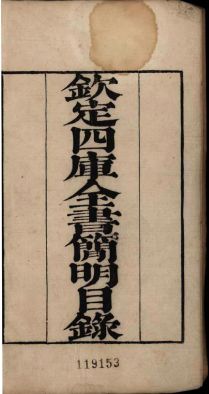 欽定四庫全書簡明目錄
119153